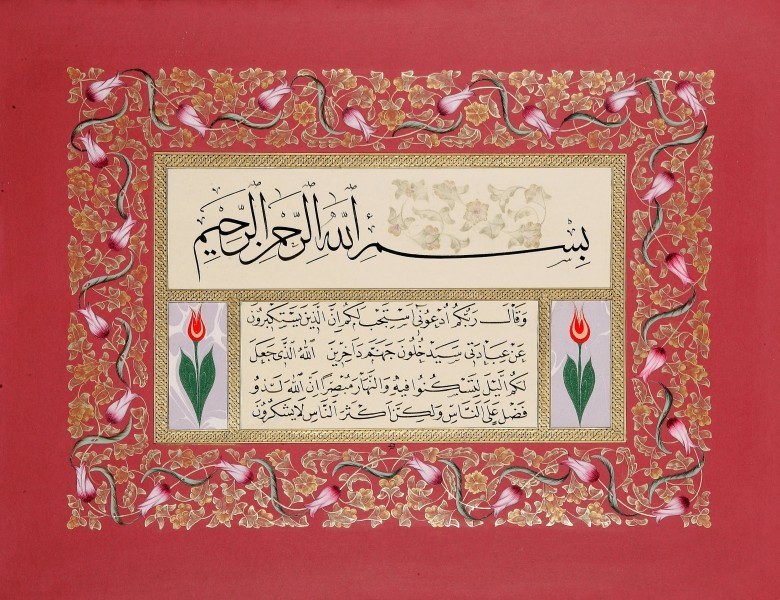 بِسْمِ اللّٰهِ الرَّحْمٰنِ الرَّحِيْمِ
وَقَالَ رَبُّكُمُ ادْعُونٖى اَسْتَجِبْ لَكُمْ اِنَّ الَّذٖينَ يَسْتَكْبِرُونَ
عَنْ عِبَادَتٖى سَيَدْخُلُونَ جَهَنَّمَ دَاخِرٖينَ اَللّٰهُ الَّذٖى جَعَلَ
لَكُمُ الَّيْلَ لِتَسْكُنُوا فٖيهِ وَالنَّهَارَ مُبْصِرًا اِنَّ اللّٰهَ لَذُو
فَضْلٍ عَلَى النَّاسِ وَلٰكِنَّ اَكْثَرَ النَّاسِ لَا يَشْكُرُونَ